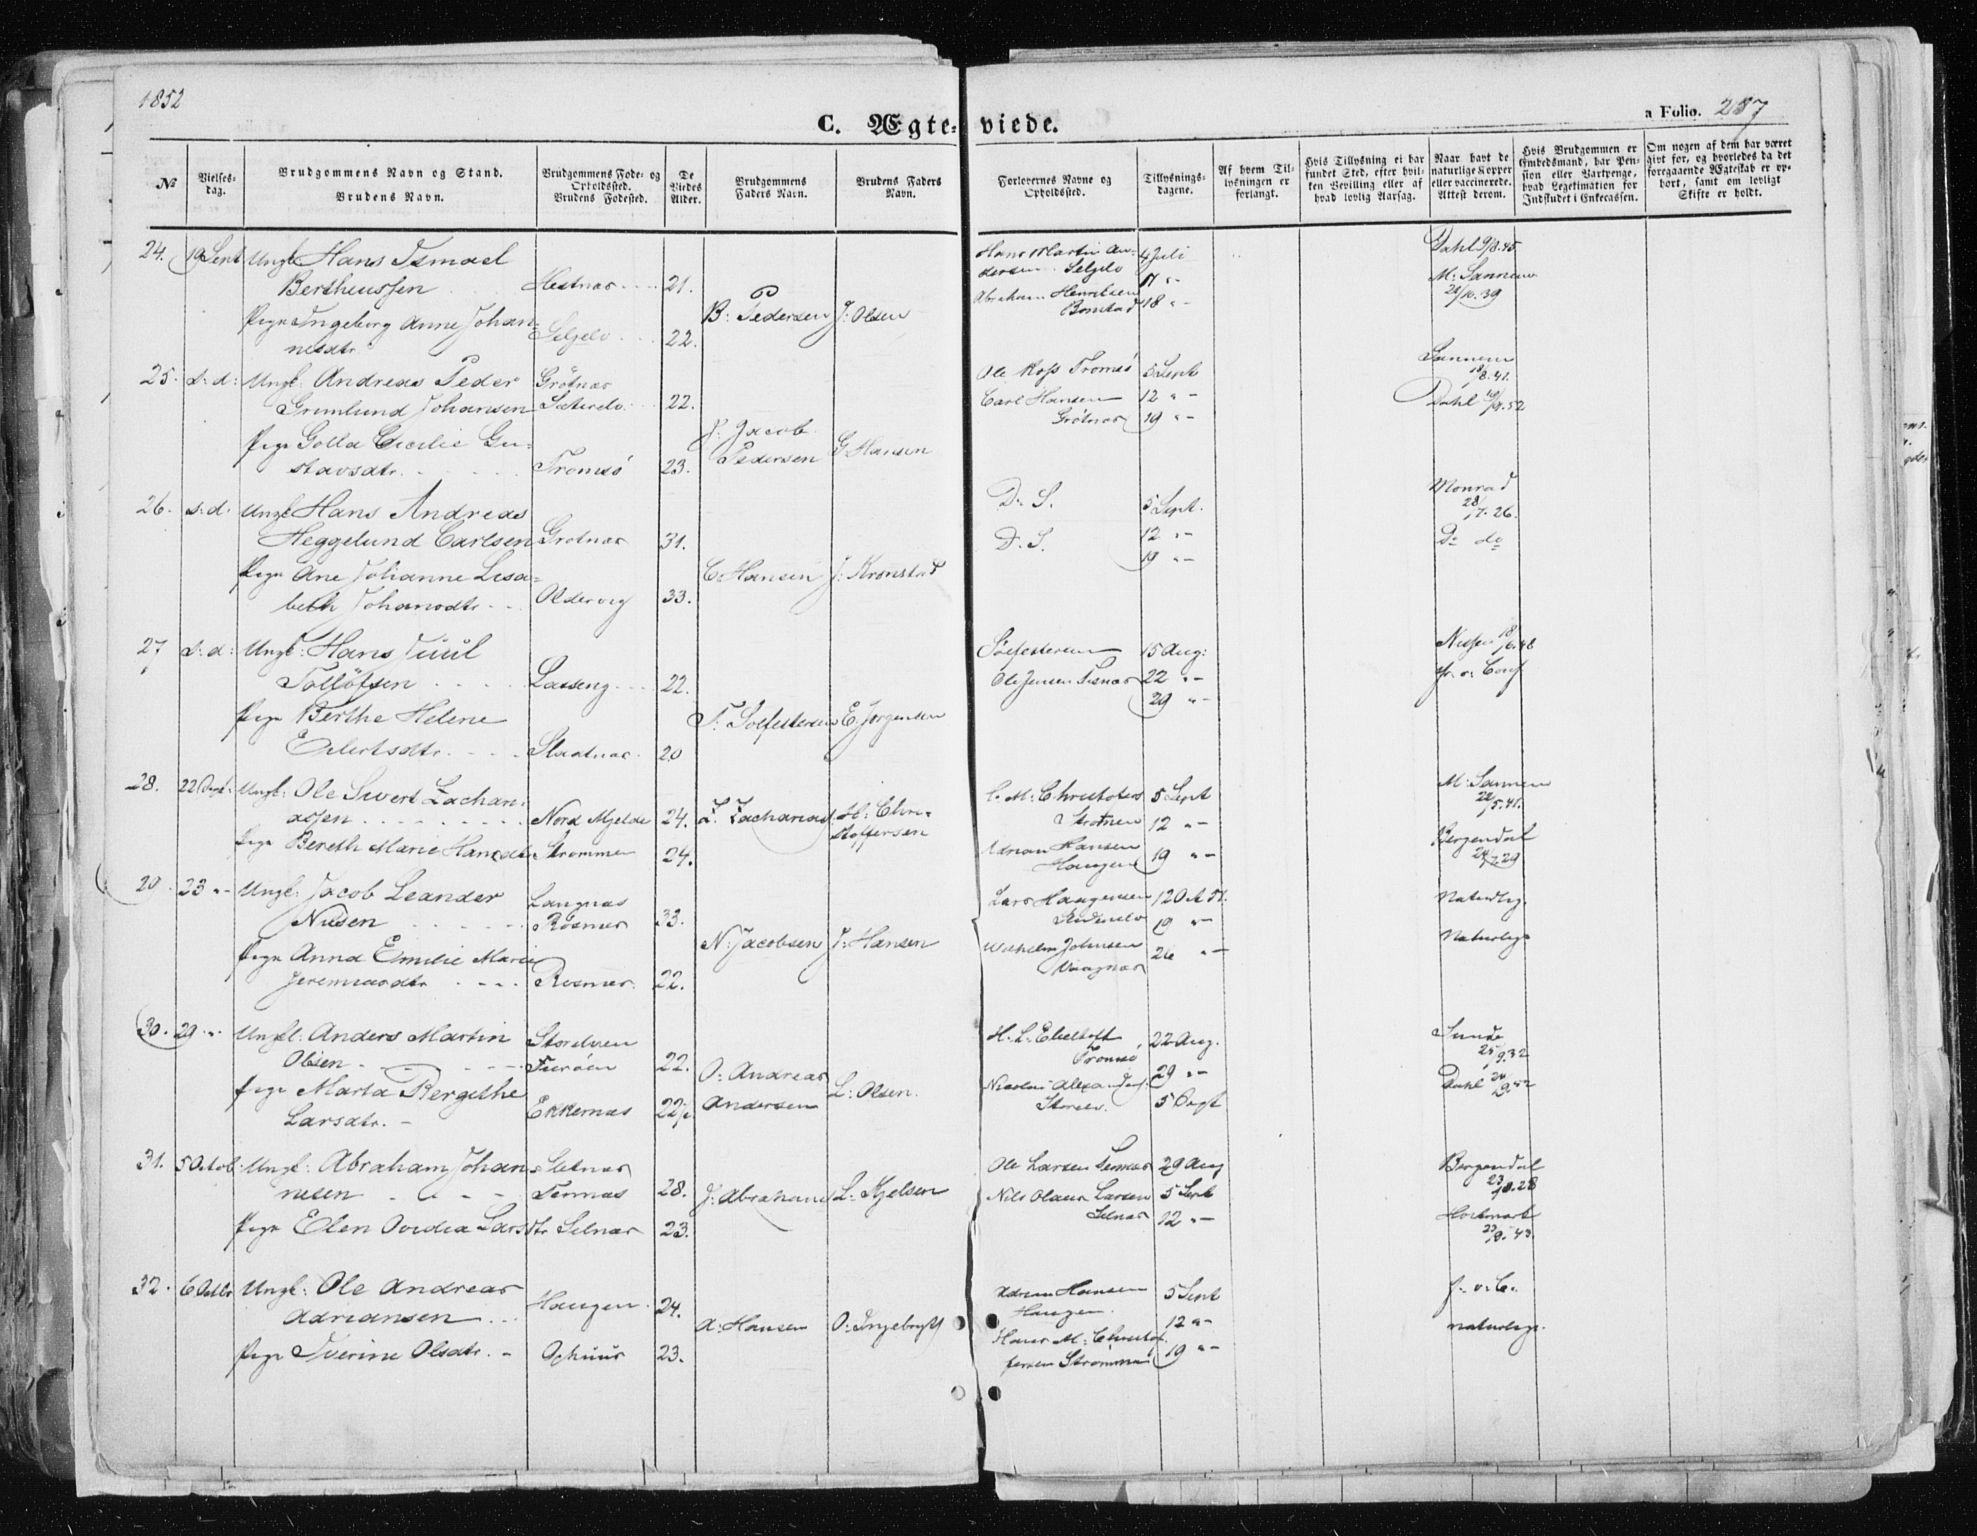 1852
C. Ægte-viede.
a Folio. 287
№
Vielses-dag.
Brudgommens Navn og Stand.
Brudens Navn.
Brudgommens Føde- og Opholdssted.
Brudens Fødested.
De Viedes Alder.
Brudgommens Faders Navn.
Brudens Faders Navn.
Forlovernes Navne og Opholdssted.
Tillysnings-dagene.
Af hvem Tillysningen er forlangt.
Hvis Tillysning ei har fundet Sted, efter hvilken Bevilling eller af hvad lovlig Aarsag.
Naar havt de naturlige Kopper eller vaccinerede. Attest derom.
Hvis Brudgommen er Embedsmand, har Pension eller Vartpenge, hvad Legitimation for Indskudet i Enkecassen.
Om nogen af dem har været givt før, og hvorledes da det foregaaende Ægteskab er ophørt, samt om lovligt Skifte er holdt.
24. 19 Sept Ungk Hans Ismael Hans Martin An- 4 Juli Dahl 9/8.45
Bertheussen Hestnæs 21. dersen Selgelv 11 "- M: Sannem
B: Pedersen J: Olsen Abraham Henriksen 18 "- /10.39
Pige Ingeborg Anne Johan- Selgelv 22. Bomstad
nesdtr.
25. s: d: Ungk: Andreas Peder Grötnæs Ole Ross Tromsö 5 Sept Sannem
Grønlund Johansen Sæterelv 22. Carl Hansen 12 "- 18/8.41.
Grötnæs 19 "- Dahl /9.52
Pige Golla Cecilie Gu- J: Jacob
stavsdtr. Tromsö 23. Pedersen G Hansen
26. s: d. Ungk Hans Andreas D: S. 5 Sept. Monrad
Heggelund Carlsen Grötnæs 31. D. S. 12 "- 28/7.26.
19 "- Do do
Pige Ane Johanne Lisa- C. Hansen J: Kronstad
beth Johansdtr. Oldervig 33.
27 s: d: Ungk: Hans Juul 15 Aug: 18/6.48
Tollöfsen Lanseng 22. Ole Jensen Tisnæs 22 "-
29 "-
Pige Berthe Helene T: E. Jørgensen
Eilertsdtr. Slaatnæs 20
28. 22 Sept. Ungk: Ole Sivert Zachari- C. M: Christofers 5 Sept M: Sannem
assen Nord Mjelde 24. Z. Zacharias. H: Chri- Strömen 12 "- 22/5.41.
Pige Bereth Marie Hansdtr Strömmen 24. stoffersen Adrian Hansen 19 "- Bergendal
Haugen 24/7.29
29. 23 "- Ungk: Jacob Leander Langnæs Lars Haagensen 12 Naturlig.
Nilsen Rösnæs 33. 19 "-
N: Jacobsen J: Hansen Wilhelm Johnsen 26 "- Naturlige
Pige Anna Emilie Marie Vaagnæs
Jeremiasdtr Rösnæs 22.
30. 29 "- Ungk: Anders Martin Storelven H. L. Ebeltoft 22 Aug. Sunde
Olsen Tueröen 22. Tromsö 29 "- 25/9.32
O: Andreas Nicolai Alexanders. 5 Sept Dahl
Pige Marta Bergithe Andersen L: Olsen. Storelv.
Larsdtr. Ekkernæs 22½
31. 5 Octob: Ungk: Abraham Johan- Sletnæs Ole Larsen 29 Aug Bergendal
nesen Tennæs 28. J: Abrahams L: Kjelsen Nils Olaus Larsen 5 Sept 23/8.28
Pige Elen Ovidia Larsdtr Selnæs 23. Selnæs 12 "-
32. 6 Octbr Ungk: Ole Andreas Adrian Hansen 5 Sept f. v. C.
Adriansen Haugen 24. Haugen. 12 "-
A: Hansen O: Ingebrigts Hans M: Christof- naturlige.
Pige Iverine Olsdtr. Ophuus 23. fersen Strömmen 19 "-